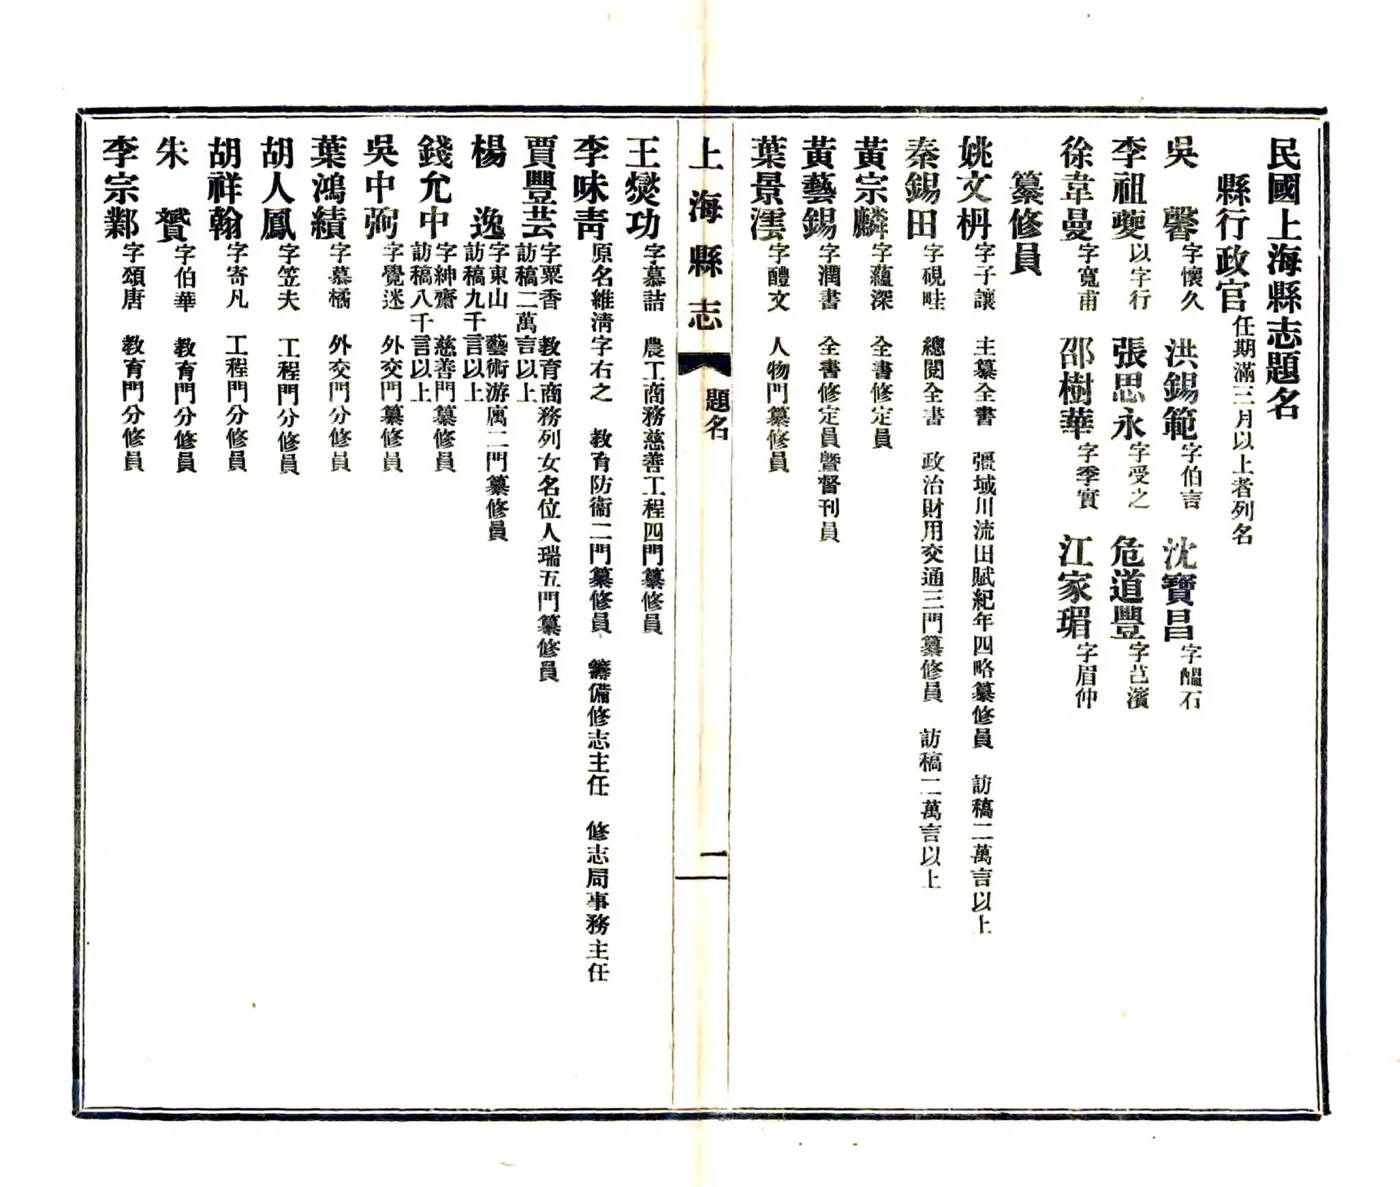 民國上海縣志題名
縣行政官 任期滿三月以上者列名
吳馨 字懷久 洪錫範 字伯言 沈寶昌 字醞石
李祖夔 以字行 張思永 字受之 危道豐 字芑濱
徐韋曼 字寬甫 邵樹華 字季實 江家瑂 字眉仲
纂修員
姚文枬 字子讓 主纂全書 彊域川流田賦紀年四略纂修員 訪稿二萬言以上
秦錫田 字硯畦 總閱全書 政治財用交通三門纂修員 訪稿二萬言以上
黃宗麟 字蘊深 全書修定員
黃藝錫 字潤書 全書修定員曁督刊員
葉景澐 字醴文 人物門纂修員
上海縣志 題名 一
王爕功 字慕詰 農工商務慈善工程四門纂修員
李味靑 原名維淸字右之 敎育防衞二門纂修員 籌備修志主任 修志局事務主任
賈豐芸 字粟香 敎育商務列女名位人瑞五門纂修員
訪稿二萬言以上
楊逸 字東山 藝術游寓二門纂修員
訪稿九千言以上
錢允中 字紳齋 慈善門纂修員
訪稿八千言以上
吳中弼 字覺迷 外交門纂修員
葉鴻績 字慕橘 外交門分修員
胡人鳳 字笠夫 工程門分修員
胡祥翰 字寄凡 工程門分修員
朱贇 字伯華 敎育門分修員
李宗鄴 字頌唐 敎育門分修員